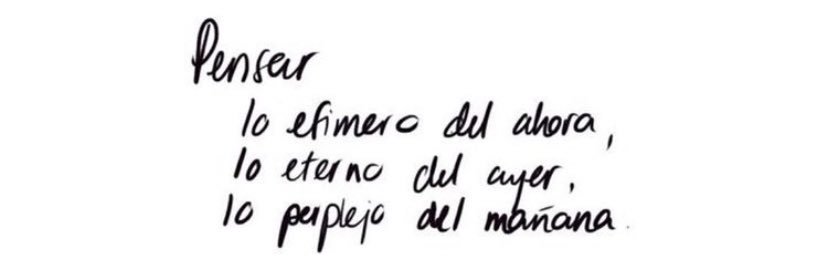 Pensar
lo efimero del ahora,
lo eterno del ayer,
lo perplejo del mañana.